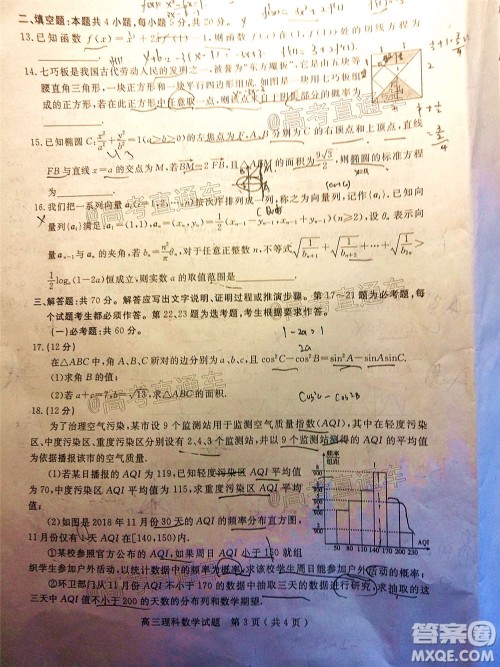 二、填空题：本题共4小题，每小题5分，共20分。
13. 已知函数
，则f(x)在
处的切线方程为
14. 七巧板是我国古代劳动人民的发明之一，被誉为“东方魔板”，它是由五块等
腰直角三角形，一块正方形和一块平行四边形组成的。如图是一个用七巧板拼
成的正方形，若在此正方形中任意取一点，则此点取自阴影部分的概率为
15. 已知椭圆C: x²/a²+y²/b²=1(a>b>0)的左焦点为F, A、B分别为C的右顶点和上顶点，直线
FB与直线x=a的交点为M，若BM=2FB，且△AFM的面积为9√3/2，则椭圆的标准方程
为
16. 我们把一系列向量aᵢ(i=1,2,…,n)按次序排列成一列，称之为向量列，记作{aᵢ}，已知向
量列{aᵢ}满足a₁=(1,1), aₙ=(xₙ,yₙ)=½(xₙ₋₁-yₙ₋₁, xₙ₋₁+yₙ₋₁)(n≥2)，设θₙ表示向
量aₙ₋₁与aₙ的夹角，若bₙ=n²/π θₙ，对于任意正整数n，不等式√(1/bₙ₊₁)+√(1/bₙ₊₂)+…+√(1/b₂ₙ)>
½logₐ(1-2a)恒成立，则实数a的取值范围是
三、解答题：共70分。解答应写出文字说明、证明过程或推演步骤。第17~21题为必考题，每
个试题考生都必须作答。第22、23题为选考题，考生根据要求作答。
(一)必考题：共60分。
1-2a>1
2a
17. (12分)
在△ABC中，角A、B、C的对边分别为a、b、c，且cos²C-cos²B=sin²A-sinAsinC.
(1)求角B的值；
cos²C-cos²B
(2)若a+c=7, b=√13，求△ABC的面积.
18. (12分)
为了治理空气污染，某市设9个监测站用于监测空气质量指数(AQI)，其中在轻度污染
区、中度污染区、重度污染区分别设有2、4、3个监测站，并以9个监测站测得的AQI的平均值
为依据播报该市的空气质量.
(1)若某日播报的AQI为119，已知轻度污染区AQI平均值
为70，中度污染区AQI平均值为115，求重度污染区AQI平均
值；
(2)如图是2018年11月份30天的AQI的频率分布直方图，
11月份仅有一天AQI在[140,150)内.
①某校参照官方公布的AQI，如果周日AQI小于150就
组织学生参加户外活动，以统计数据中的频率为概率，求该校学生周日能参加户外活动的概率；
②环卫部门从11月份AQI不小于170的数据中抽取三天的数据进行研究，求抽取的这
三天中AQI值不小于200的天数的分布列和数学期望.
频率
组距
AQI
0
50
70
90
110
130
150
170
190
210
230
高三理科数学试题 第3页（共4页）
@高考直通车
@高考直通车
@高考直通车
答案圈
MXQE.COM